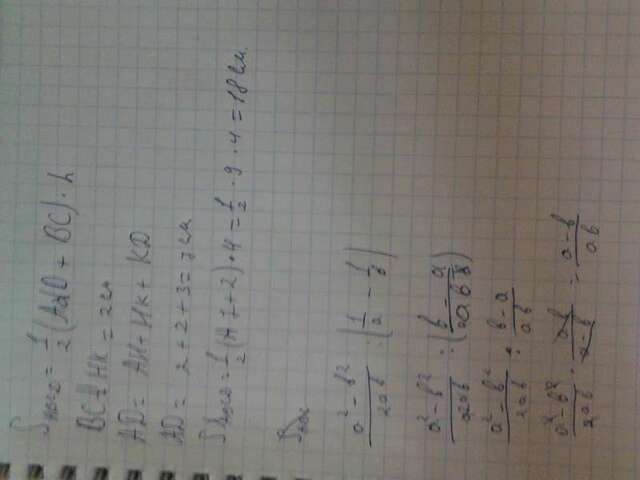 S_ABCD = 1/2 (AD + BC) · h
BC = HK = 2см
AD = AH + HK + KD
AD = 2 + 2 + 3 = 7см
S_ABCD = 1/2 (7 + 2) · 4 = 1/2 · 9 · 4 = 18 см
(a² - b²)/(2ab) : (1/a - 1/b)
(a² - b²)/(2ab) : (b - a)/(ab)
(a² - b²)/(2ab) : (b - a)/(ab)
(a² - b²)/(2ab) · (ab)/(a - b) = (a - b)/(ab)